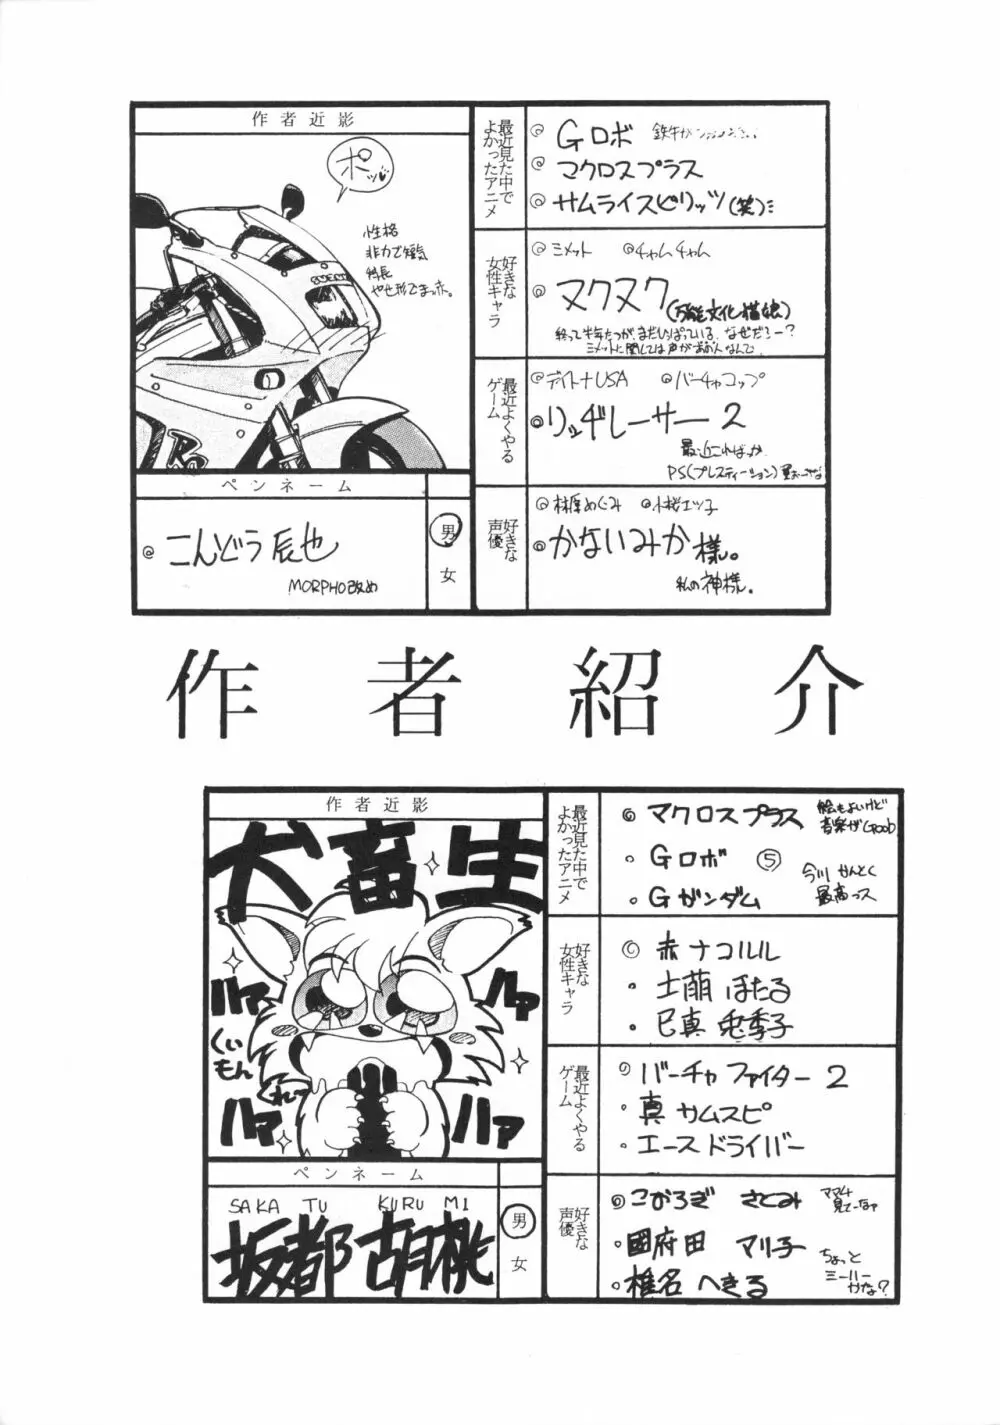 作者近影
ポッ
性格
非力で短気
体長
やせ形でまっ赤。
ペンネーム
こんどう辰也
MORPHO改め
男
女
最近見た中で
よかったアニメ
Gロボ
マクロスプラス
サムライスピリッツ(笑)
好きな
女性キャラ
ミメット
チャムチャム
ヌクヌク(万能文化猫娘)
終って半年たつが、まだいっぱっている。なぜだろー?
ミメットに関しては声があの人なんで
最近よくやる
ゲーム
デイトナUSA
バーチャコップ
リッヂレーサー2
最近こればっか
PS(プレステーション)
好きな
声優
林原めぐみ
小桜エツ子
かないみか様。
私の神様。
作者紹介
作者近影
犬畜生
ハァ
ハァ
ハァ
ハァ
くいもんくれー
ペンネーム
SAKA TU KURU MI
坂都胡桃
男
女
最近見た中で
よかったアニメ
マクロスプラス
絵もよいけど
音楽がGood
Gロボ ⑤
Gガンダム
今川かんとく
最高っス
好きな
女性キャラ
赤ナコルル
土萠ほたる
巳真兎季子
最近よくやる
ゲーム
バーチャファイター2
真サムスピ
エースドライバー
好きな
声優
こおろぎさとみ
ママ4
見てーなァ
國府田マリ子
椎名へきる
ちょっと
ミーハー
かな?